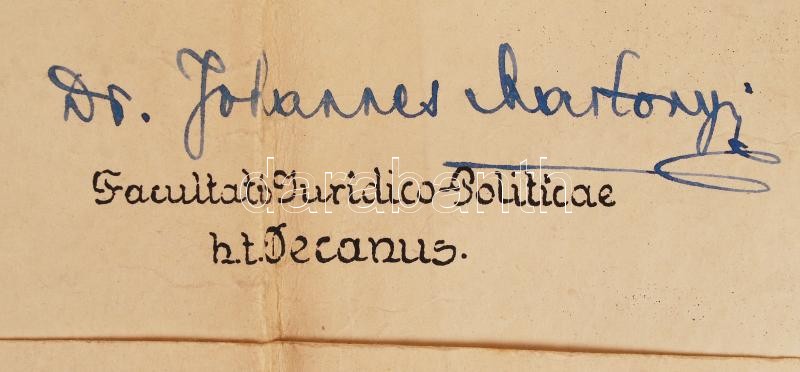 Dr. Johannes Martonyi
Facultatis Juridico-Politicae
h.t. Decanus.
darabanth